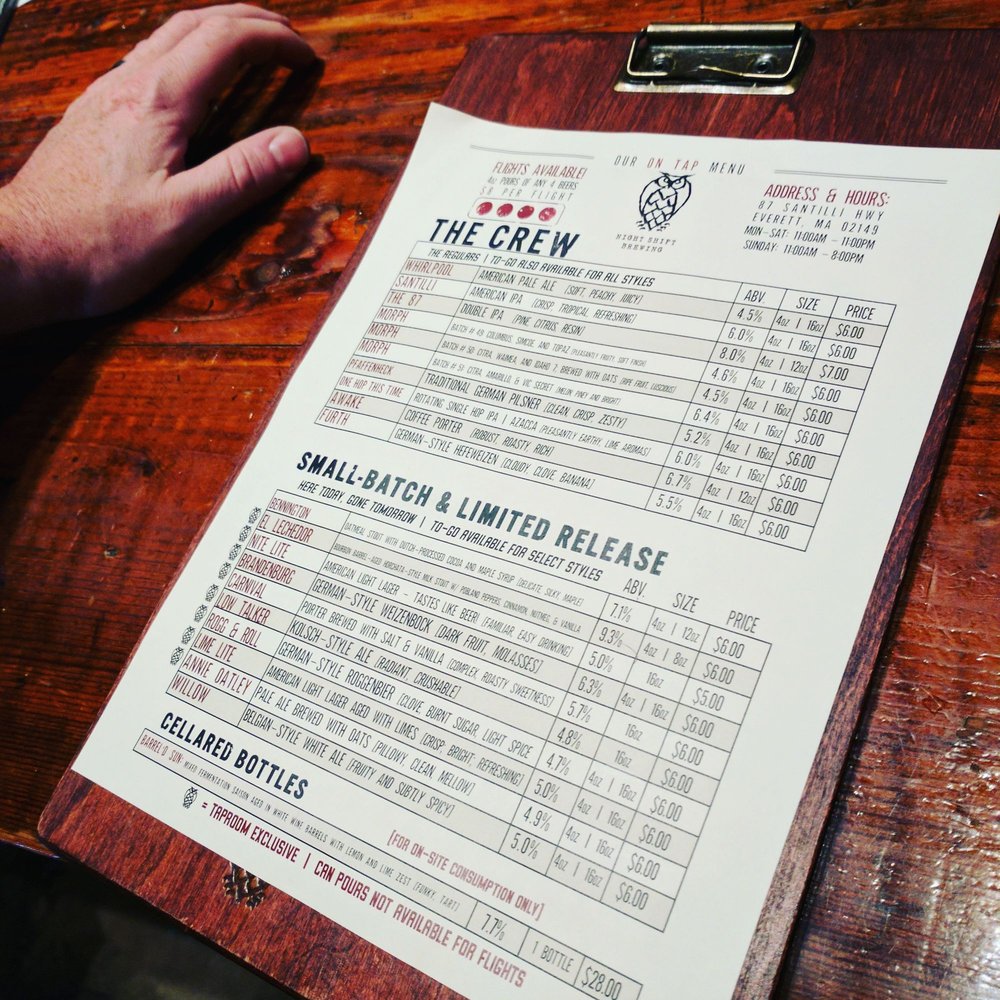 OUR ON TAP MENU
FLIGHTS AVAILABLE!
4oz POURS OF ANY 4 BEERS
$8 PER FLIGHT
NIGHT SHIFT
BREWING
ADDRESS & HOURS:
87 SANTILLI HWY
EVERETT, MA 02149
MON-SAT: 11:00AM - 11:00PM
SUNDAY: 11:00AM - 8:00PM
THE CREW
THE REGULARS | TO-GO ALSO AVAILABLE FOR ALL STYLES ABV SIZE PRICE
WHIRLPOOL AMERICAN PALE ALE [SOFT, PEACHY, JUICY] 4.5% 4oz | 16oz $6.00
SANTILLI AMERICAN IPA [CRISP, TROPICAL, REFRESHING] 6.0% 4oz | 16oz $6.00
THE 87 DOUBLE IPA [PINE, CITRUS, RESIN] 8.0% 4oz | 12oz $7.00
MORPH BATCH # 49: COLUMBUS, SIMCOE, AND TOPAZ [PLEASANTLY FRUITY, SOFT FINISH] 4.6% 4oz | 16oz $6.00
MORPH BATCH # 50: CITRA, WAIMEA, AND IDAHO 7, BREWED WITH OATS [RIPE FRUIT, LUSCIOUS] 4.5% 4oz | 16oz $6.00
MORPH BATCH # 51: CITRA, AMARILLO, & VIC SECRET [MELON, PINEY AND BRIGHT] 6.4% 4oz | 16oz $6.00
PFAFFENHECK TRADITIONAL GERMAN PILSNER [CLEAN, CRISP, ZESTY] 5.2% 4oz | 16oz $6.00
ONE HOP THIS TIME ROTATING SINGLE HOP IPA | AZACCA [PLEASANTLY EARTHY, LIME AROMAS] 6.0% 4oz | 16oz $6.00
AWAKE COFFEE PORTER [ROBUST, ROASTY, RICH] 6.7% 4oz | 12oz $6.00
FURTH GERMAN-STYLE HEFEWEIZEN [CLOUDY, CLOVE, BANANA] 5.5% 4oz | 16oz $6.00
SMALL-BATCH & LIMITED RELEASE
HERE TODAY, GONE TOMORROW | TO-GO AVAILABLE FOR SELECT STYLES ABV. SIZE PRICE
BENNINGTON OATMEAL STOUT WITH DUTCH-PROCESSED COCOA AND MAPLE SYRUP [DELICATE, SILKY, MAPLE] 7.1% 4oz | 12oz $6.00
EL LECHEDOR BOURBON BARREL-AGED HORCHATA-STYLE MILK STOUT W/ POBLANO PEPPERS, CINNAMON, NUTMEG, & VANILLA 9.3% 4oz | 8oz $6.00
NITE LITE AMERICAN LIGHT LAGER - TASTES LIKE BEER! [FAMILIAR, EASY DRINKING] 5.0% 16oz $5.00
BRANDENBURG GERMAN-STYLE WEIZENBOCK [DARK FRUIT, MOLASSES] 6.3% 4oz | 16oz $6.00
CARNIVAL PORTER BREWED WITH SALT & VANILLA [COMPLEX, ROASTY SWEETNESS] 5.7% 16oz $6.00
LOW TALKER KOLSCH-STYLE ALE [RADIANT, CRUSHABLE] 4.8% 16oz $6.00
ROGG & ROLL GERMAN-STYLE ROGGENBIER [CLOVE, BURNT SUGAR, LIGHT SPICE] 4.7% 4oz | 16oz $6.00
LIME LITE AMERICAN LIGHT LAGER AGED WITH LIMES [CRISP, BRIGHT, REFRESHING] 5.0% 4oz | 16oz $6.00
ANNIE OATLEY PALE ALE BREWED WITH OATS [PILOWY, CLEAN, MELLOW] 4.9% 4oz | 16oz $6.00
WILLOW BELGIAN-STYLE WHITE ALE [FRUITY AND SUBTLY SPICY] 5.0% 4oz | 16oz $6.00
CELLARED BOTTLES [FOR ON-SITE CONSUMPTION ONLY]
BARREL'D SUN: MIXED FERMENTATION SAISON AGED IN WHITE WINE BARRELS WITH LEMON AND LIME ZEST [FUNKY, TART] 7.7% 1 BOTTLE $28.00
= TAPROOM EXCLUSIVE | CAN POURS NOT AVAILABLE FOR FLIGHTS